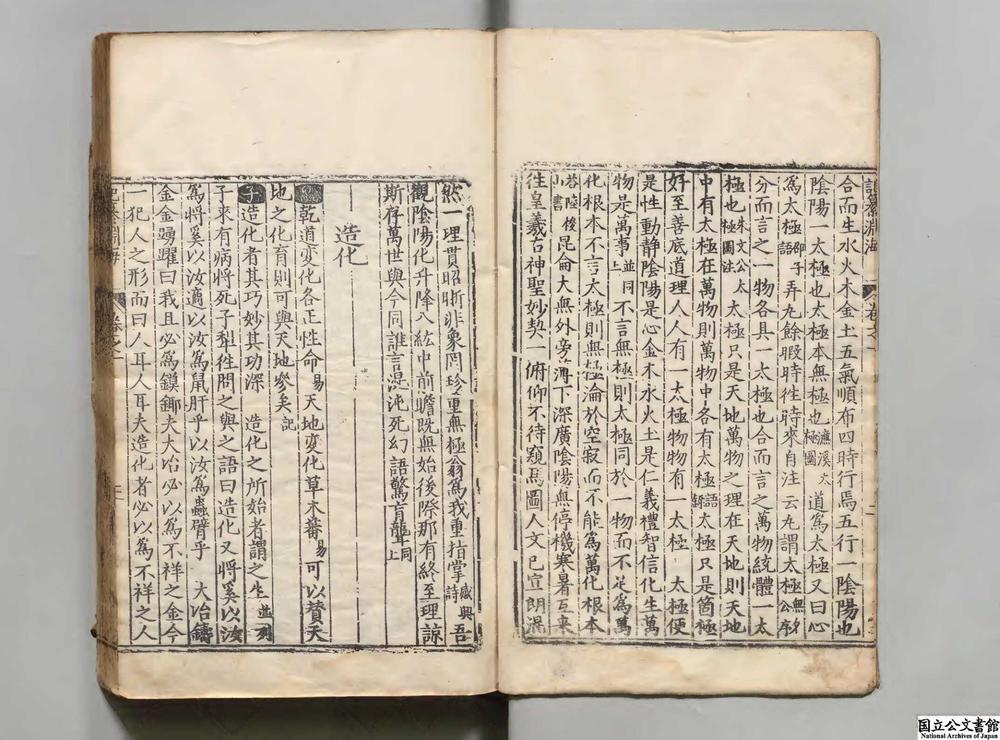 記纂淵海 卷之一 二
合而生水火木金土五氣順布四時行焉五行一陰陽也
陰陽一太極也太極本無極也濂溪太極圖道爲太極又曰心
爲太極邵子語弄九餘暇時徃時來自注云九謂太極無名公序
分而言之一物各具一太極也合而言之萬物統體一太
極也朱文公太極圖注太極只是天地萬物之理在天地則天地
中有太極在萬物則萬物中各有太極語錄太極只是箇極
好至善底道理人人有一太極物物有一太極 太極便
是性動靜陰陽是心金木水火土是仁義禮智信化生萬
物是萬事並同上不言無極則太極同於一物而不足爲萬
化根本不言太極則無極淪於空寂而不能爲萬化根本
答陸小書後昆侖大無外旁薄下深廣陰陽無停機寒暑互來
徃皇羲古神聖妙契一俯仰不待窺馬圖人文已宣朗渾
然一理貫昭晰非象罔珍重無極翁爲我重指掌感興詩吾
觀陰陽化升降八紘中前瞻旣無始後際那有終至理諒
斯存萬世與今同誰言混沌死幻語驚盲聾同上
造化
經乾道變化各正性命易天地變化草木蕃易可以贊天
地之化育則可與天地參矣記
子造化者其巧妙其功深 造化之所始者謂之生並列
子子來有病將死子犁徃問之與之語曰造化又將奚以汝
爲將奚以汝適以汝爲鼠肝乎以汝爲蟲臂乎 大冶鑄
金金踴躍曰我且必爲鏌鎁夫大冶必以爲不祥之金今
一犯人之形而曰人耳人耳夫造化者必以爲不祥之人
記纂淵海 卷之一 三
国立公文書館
National Archives of Japan